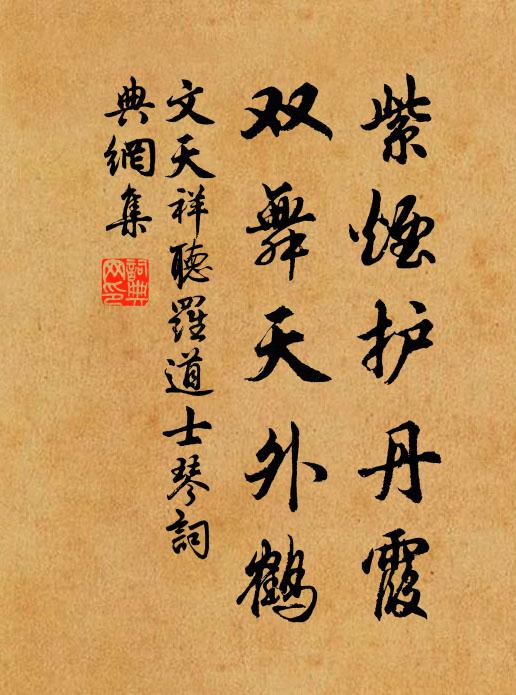 紫煙护丹霞
双舞天外鹤
文天祥聽羅道士琴詞
典網集
詞典網印